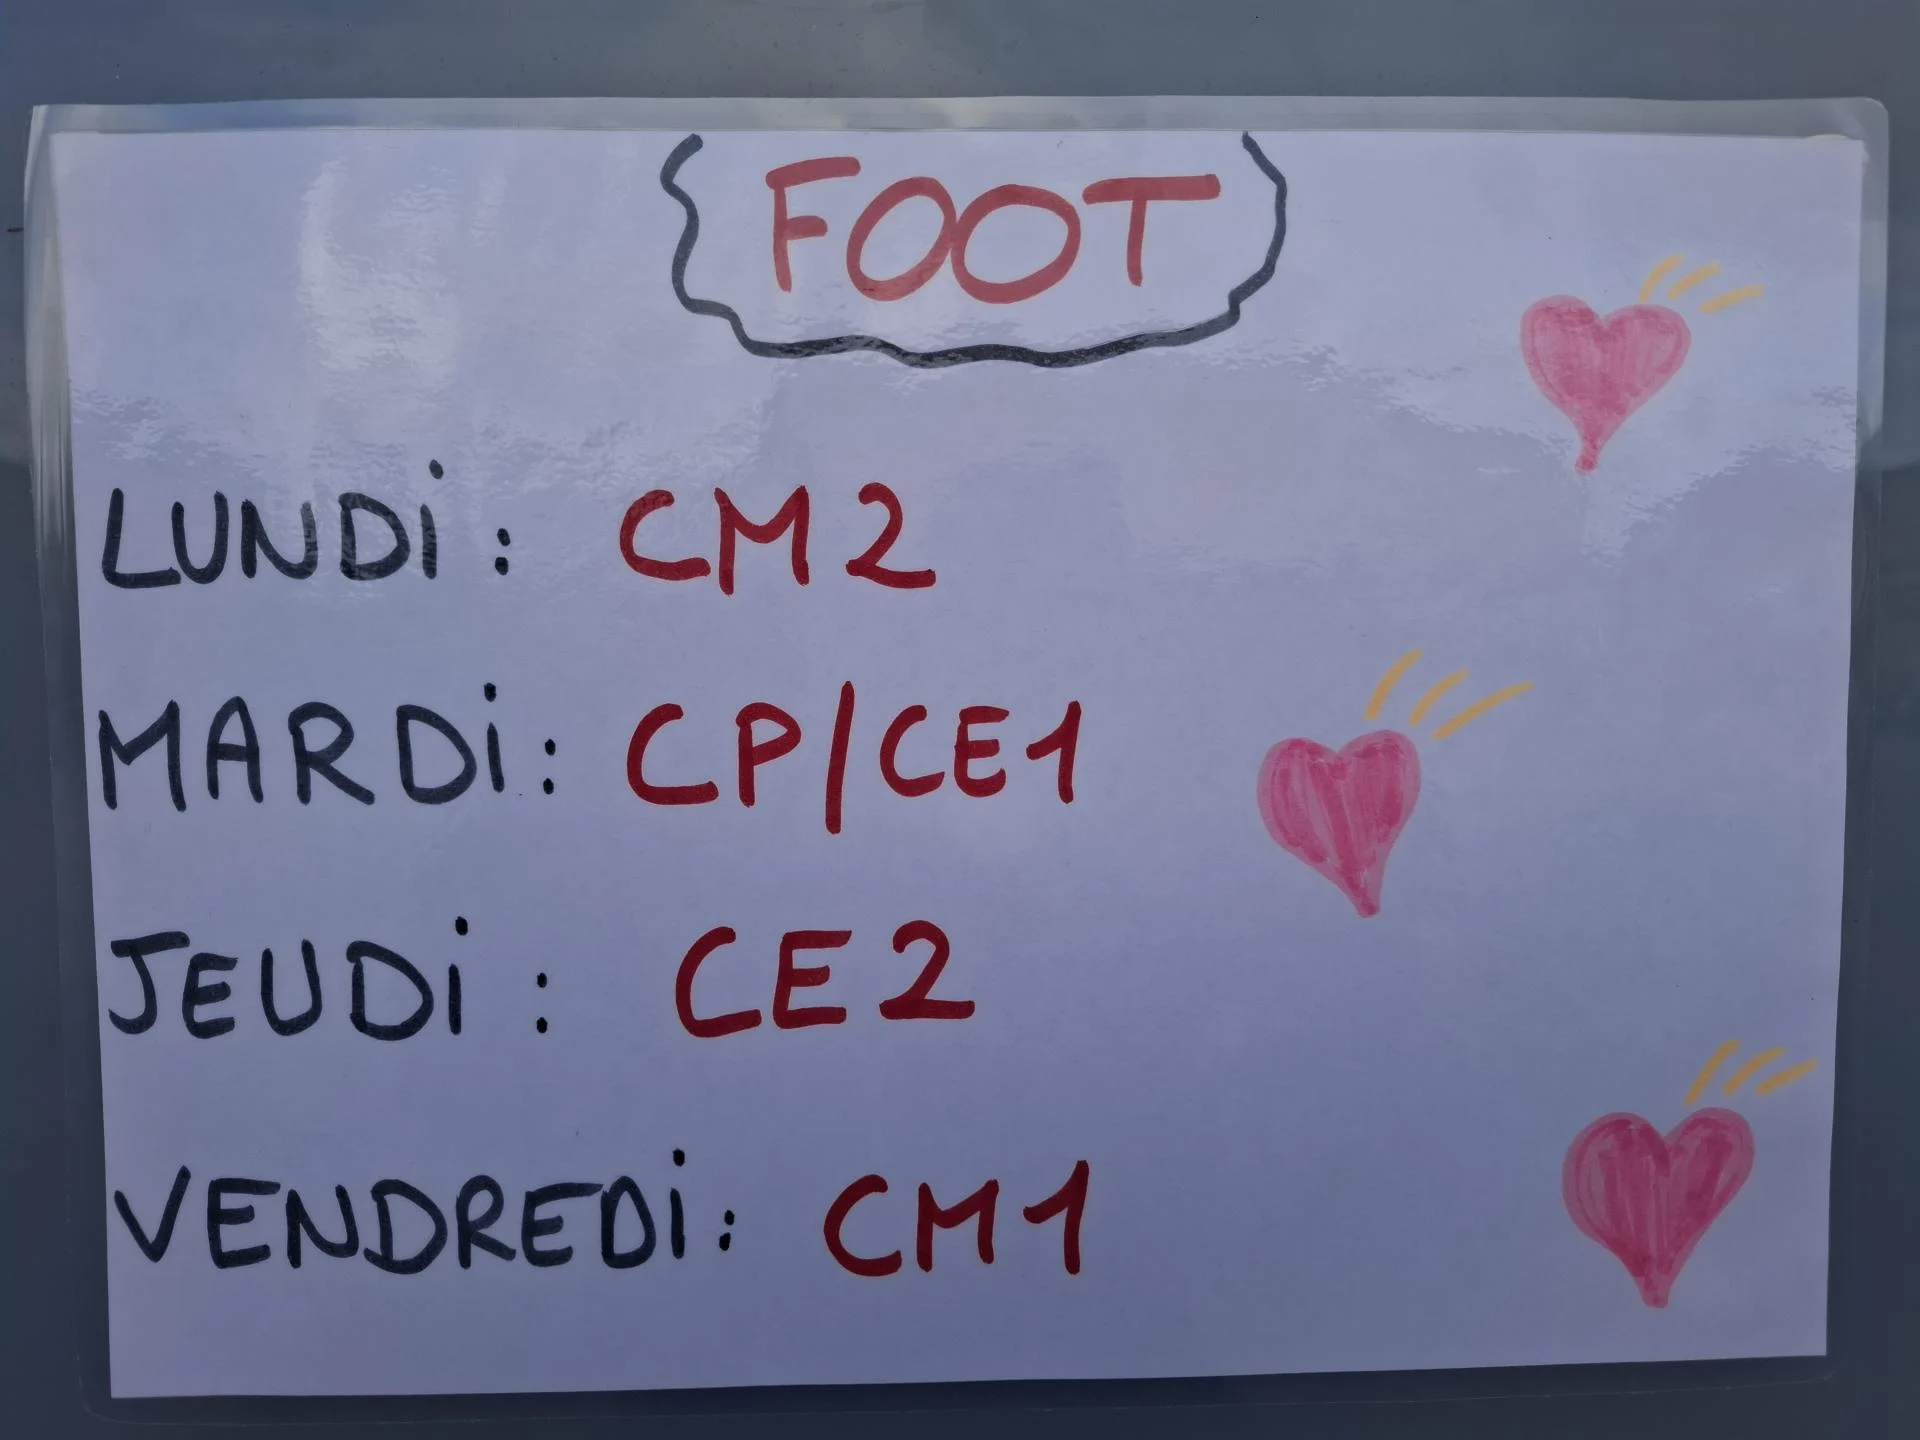 FOOT
LUNDi : CM2
MARDi : CP/CE1
JEUDi : CE2
VENDREDi : CM1